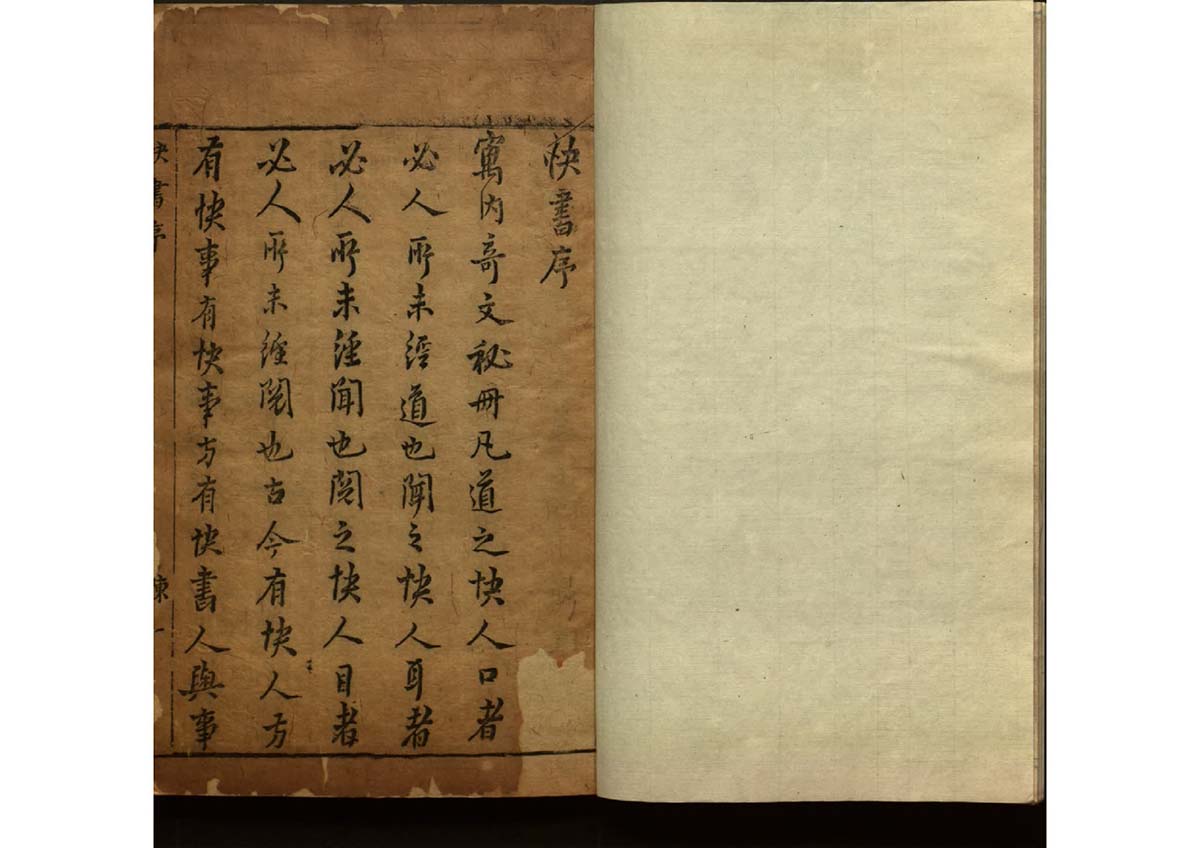 快書序
寓内奇文秘冊凡道之快人口者
必人所未經道也聞之快人耳者
必人所未經聞也閱之快人目者
必人所未經閱也古今有快人方
有快事有快事方有快書人與事
快書序
陳一